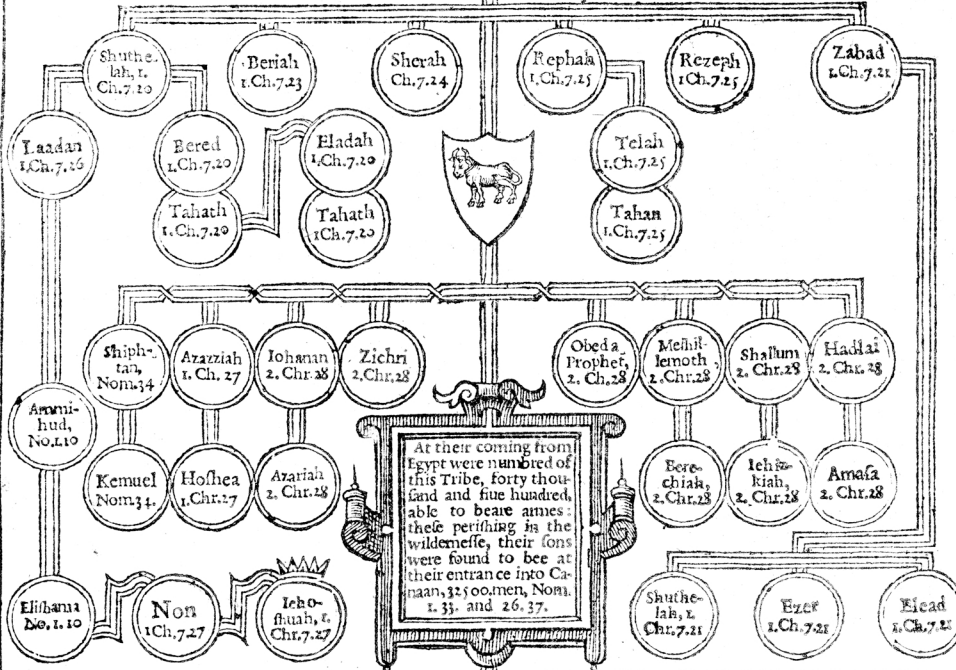 Shuthe-
lah, 1.
Ch.7.20
Beriah
1.Ch.7.23
Sherah
Ch.7.24
Rephah
1.Ch.7.25
Rezeph
1Ch.7.25
Zabad
1.Ch.7.21
Laadan
1.Ch.7.26
Bered
1.Ch.7.20
Eladah
1.Ch.7.20
Telah
1.Ch.7.25
Tahath
1.Ch.7.20
Tahath
1Ch.7.20
Tahan
1.Ch.7.25
Shiph-
tan,
Nom.34
Azazziah
1. Ch. 27
Iohanan
2. Chr.28
Zichri
2,Chr,28
Obed a
Prophet,
2. Ch.28
Meſhil-
lemoth,
2. Chr.28
Shallum
2. Chr.28
Hadlai
2. Chr.28
Ammi-
hud,
No.1.10
Kemuel
Nom.34.
Hoſhea
1.Chr.27
Azariah
2. Chr.28
Bere-
chiah,
2. Chr.28
Iehiz-
kiah,
2. Chr.28
Amaſa
2. Chr.28
At their coming from
Egypt were numbred of
this Tribe, forty thou-
ſand and fiue hundred,
able to beare armes:
theſe periſhing in the
wilderneſſe, their ſons
were found to bee at
their entrance into Ca-
naan, 32500.men, Nom.
1. 33. and 26. 37.
Eliſhama
No. 1. 10
Non
1Ch.7.27
Ieho-
ſhuah, 1.
Chr.7.27
Shuthe-
lah, 1.
Chr.7.21
Ezer
1.Ch.7.21
Elead
1.Ch.7.21